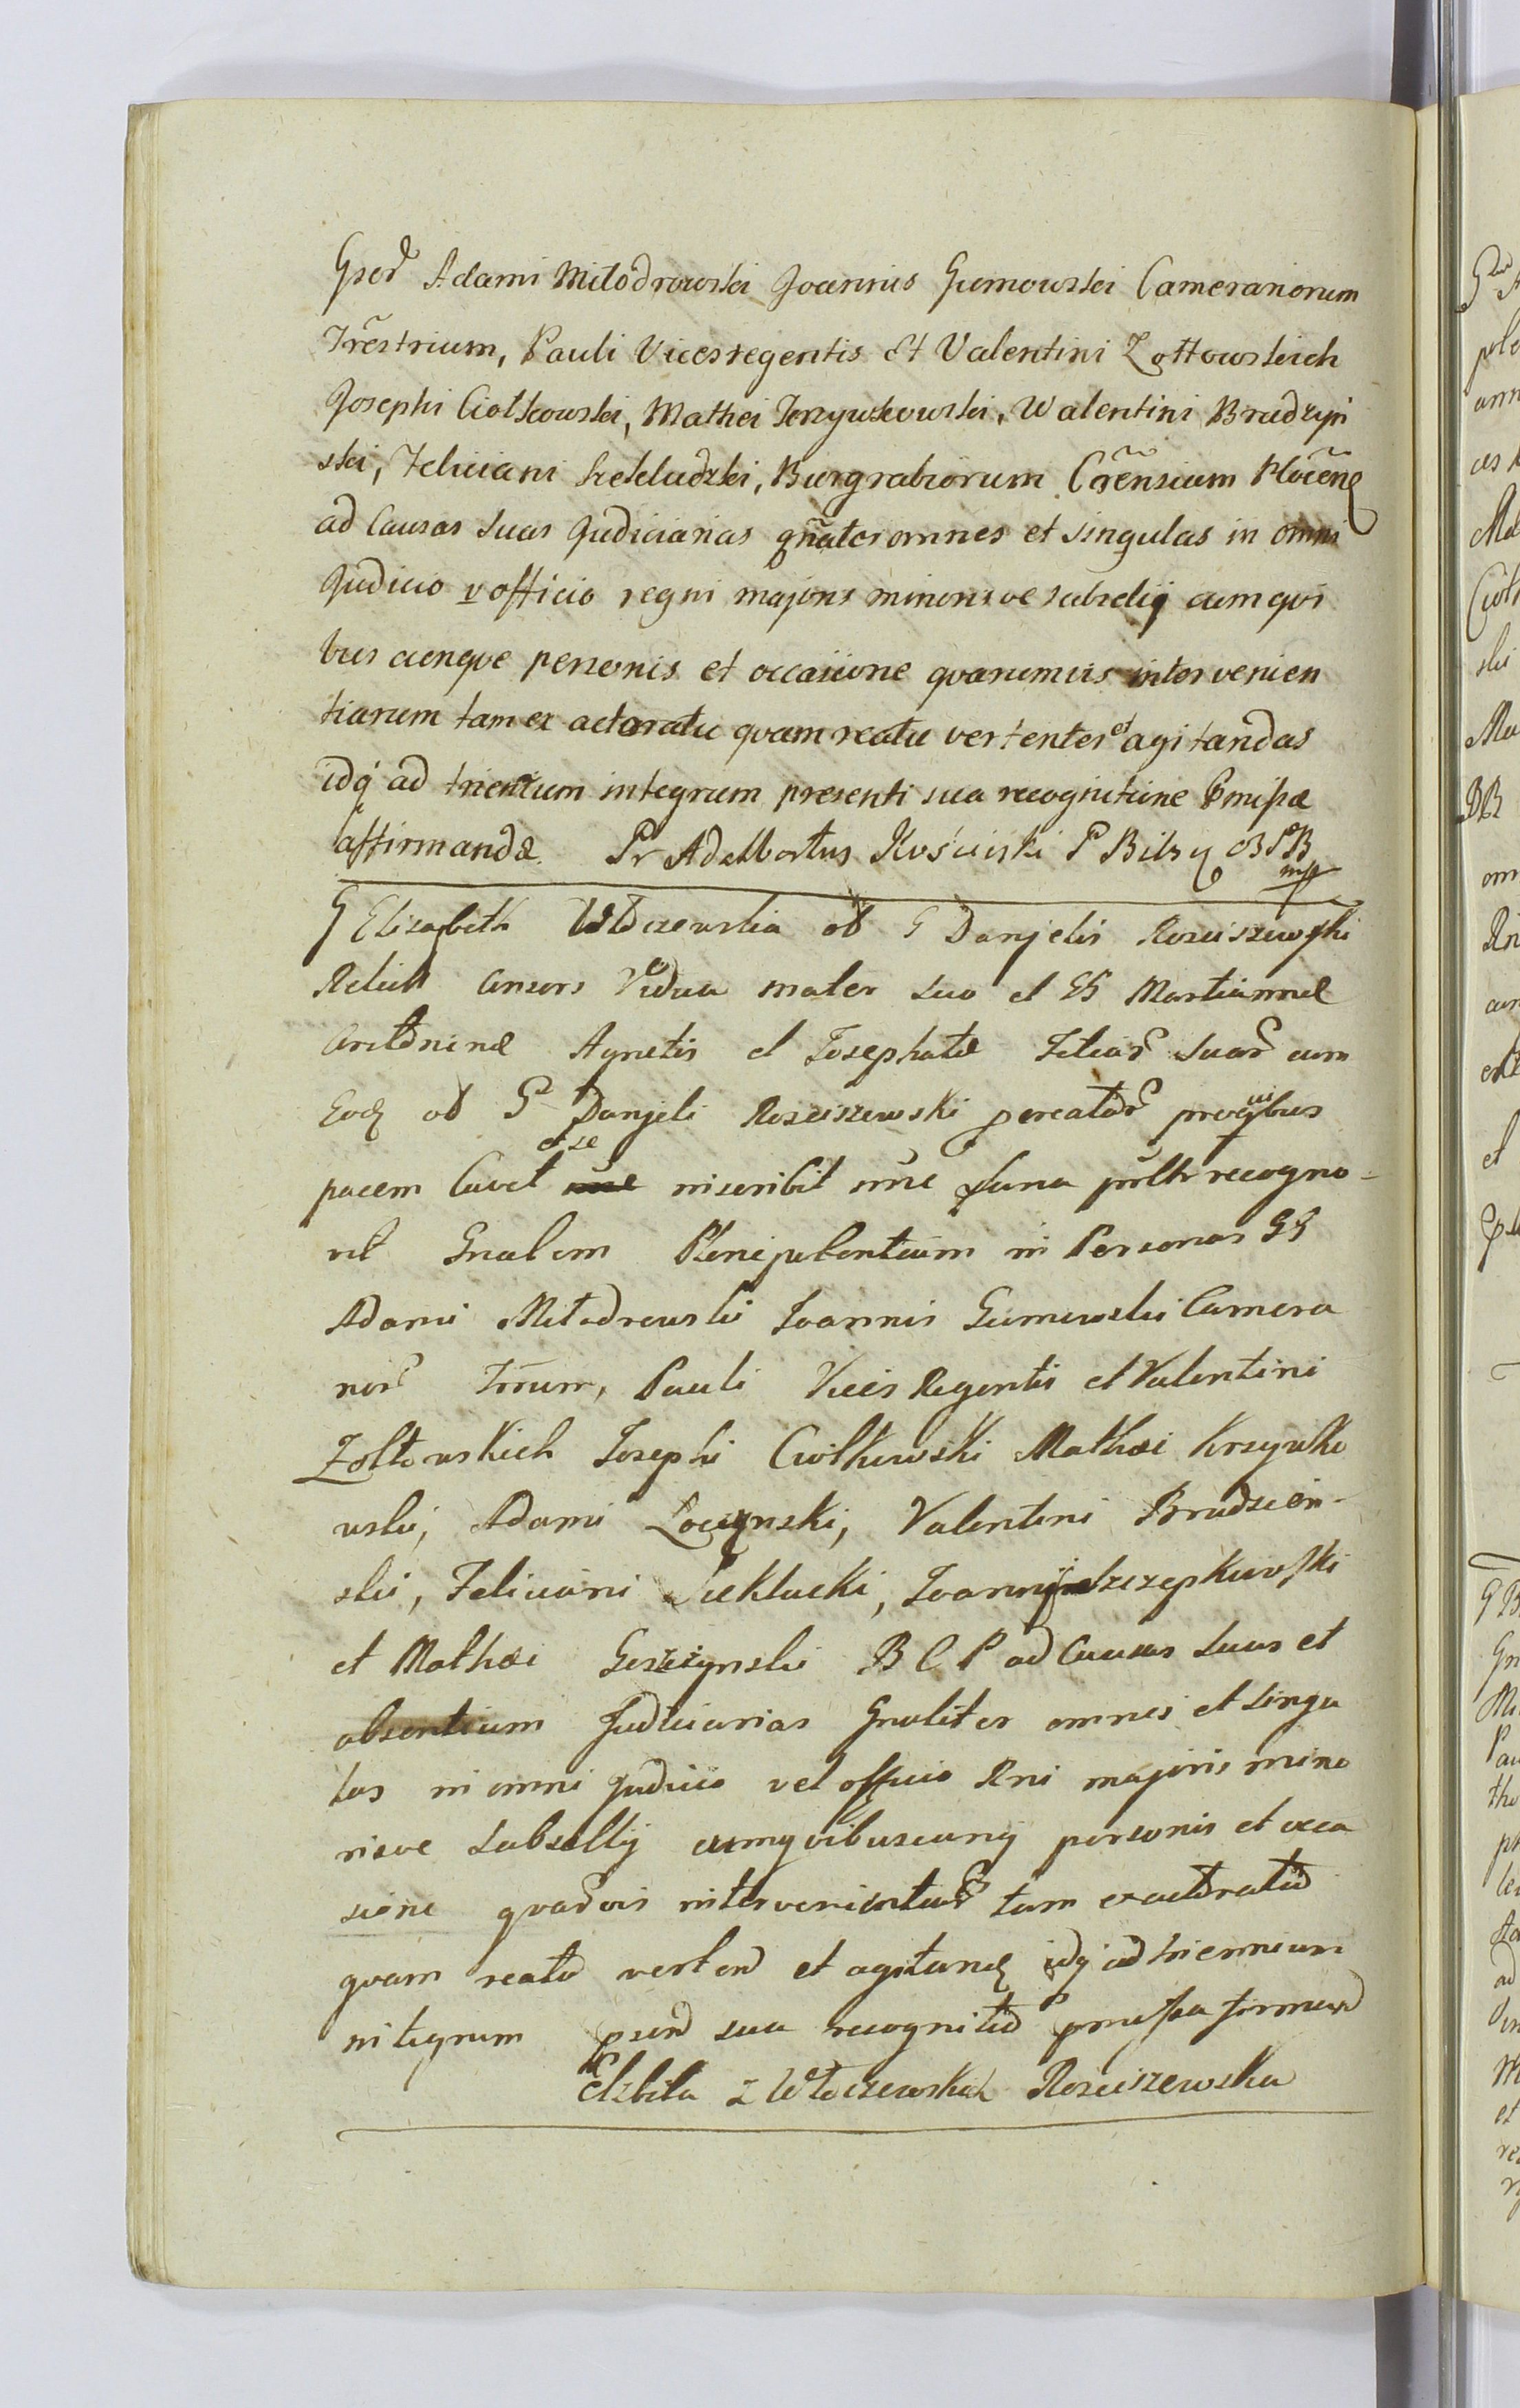 Gser̃ Adami Miłodrowski Joannis Gumowski Cameranorum
Tr̃estrium, Pauli Vicesregentis Et Valentini Zołtowskich
Josephi Ciołkowski, Mathei Krzywkowski, Walentini Brudzyn
ski, Feliciani Siekludzki, Burgrabiorum Crẽnsium Plocẽn
ad Causas Suas Judiciarias gñater omnes et singulas in omni
Judicio v officio regni majoris minorisve subselij cum qvi
bus cunqve personis et occasione qvarumvis intervenien
tiarum tam ex actoratu qvam reatu vertentes et agitandas
idq́ ad trienium integrum presenti sua recognitione
affirmandæ. Pr Adalbertus Kościiski P Bilsy B P B
mp
G Elizabeth Włoczewska ol G Danjelis Rosciszewski
Relict Consors Vidua mater suo et GG Martiannæ
Antoninæ Agnetis et Josephatæ Filiar̃ Suar̃ cum
Eod ol G Danjeli Rosciszewski procreatar̃
pacem Cavet et se inscribit recogno-
vit Gnalem Plenipotentium in Personas GG
Adami Miłodrowski Joannis Gumowski Camera
nor̃ Trium, Pauli Vices Regentis et Valentini
Zołtowskich Josephi Ciołkowski Mathæi Krzywko
wski, Adami Łoczynski, Valentini Brudzien-
ski, Feliciani Sieklucki, Joannis Szczepkowski
et Mathæi B C P ad Causas Suas et
absentium Judiciarias Gnaliter omnes et singu
las in omni Judicio vel officio Rni majoris mino
risve Subsellij cumqvibuscunq personis et occa
sione qvar̃vis intervenientiar̃ tam exactoratu
qvam reatu vertend et agitand idq ad triennium
integrum psend sua recognitio
Elzbita z Włoczewskich Rosciszewska